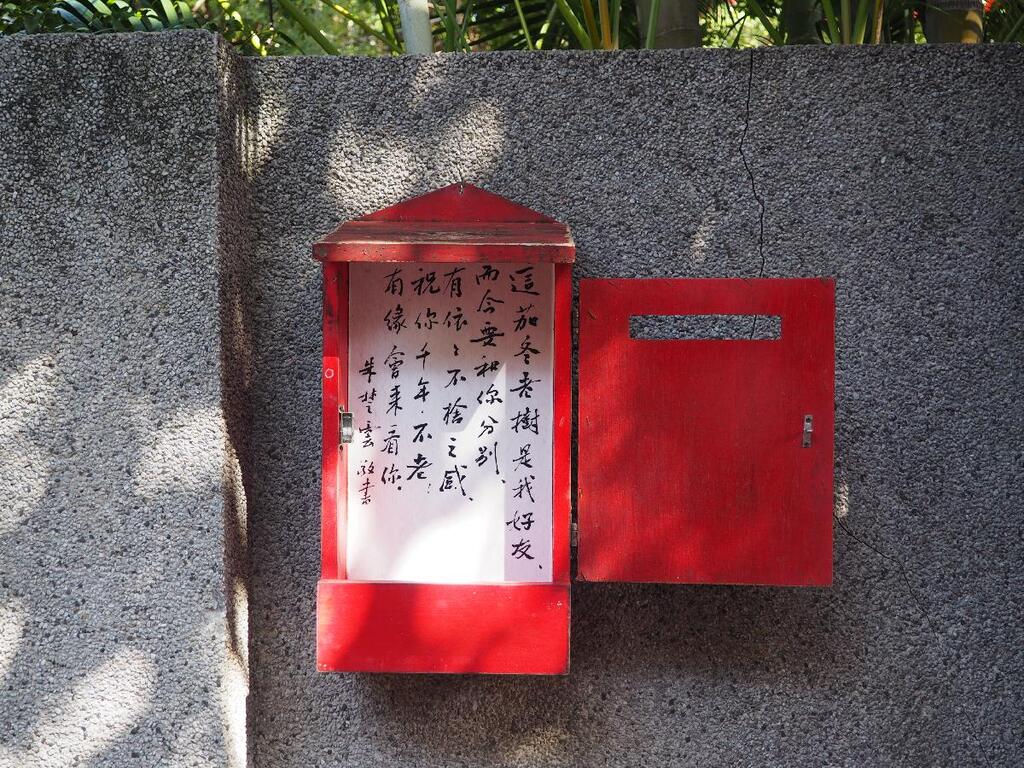 這茄苳老樹是我好友、
而今要和你分別、
有依々不捨之感、
祝你千年不老：
有緣會來看你、
朱楚雲敬書